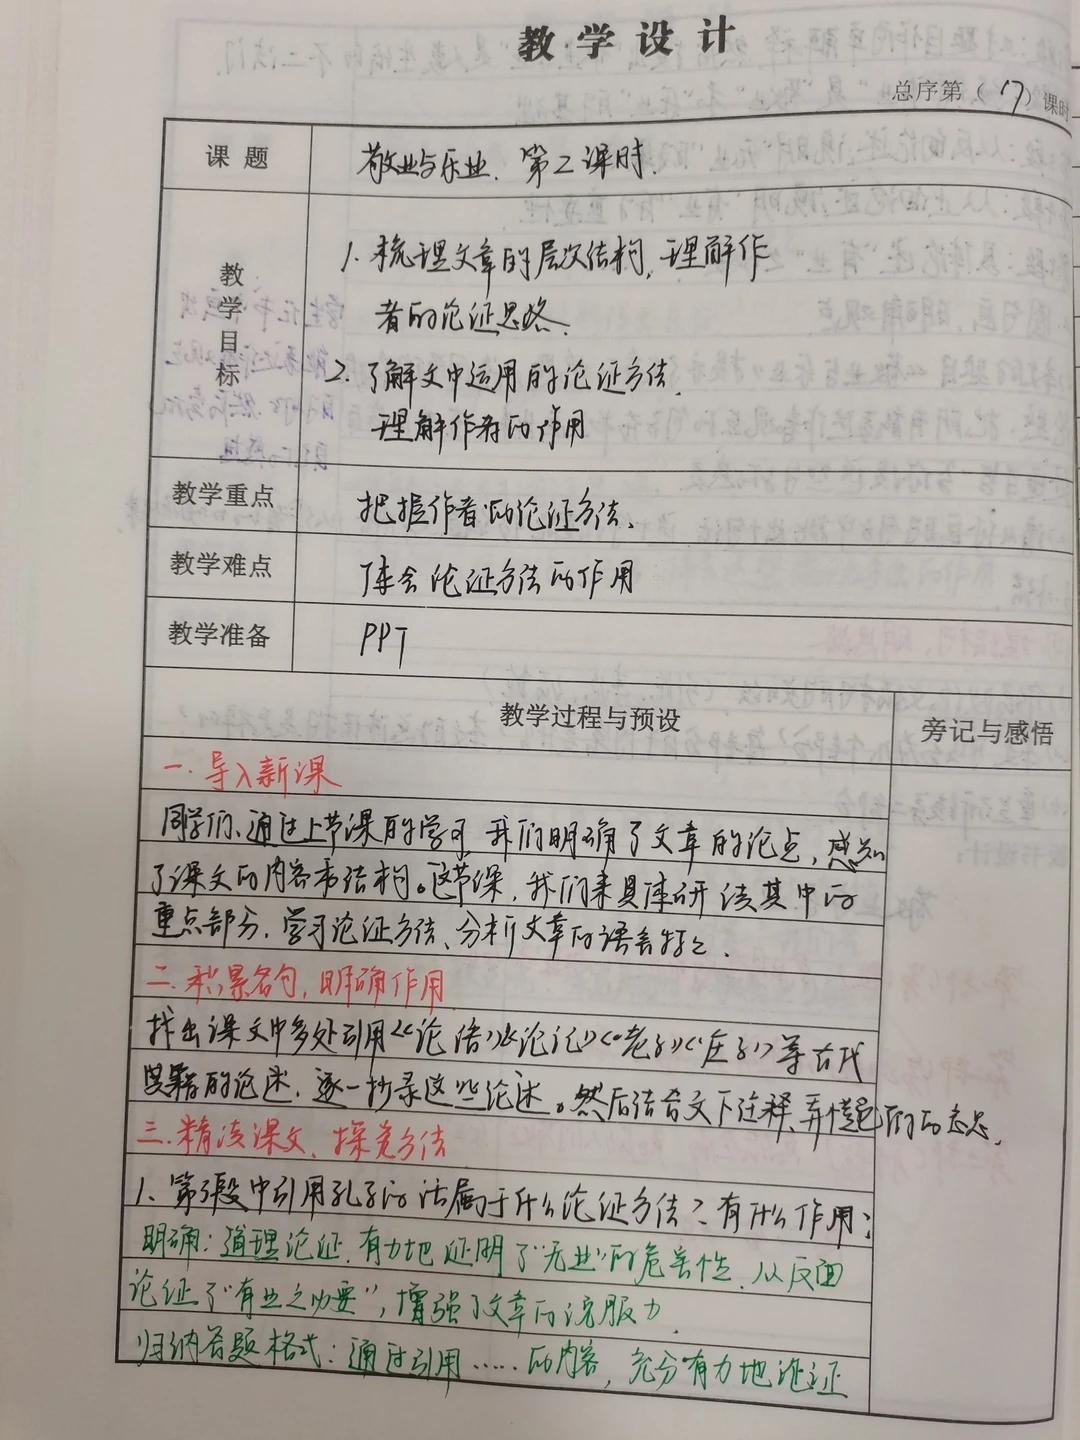 教学设计
总序第（17）课时
课题
敬业与乐业 第2课时
教学目标
1. 梳理文章的层次结构，理解作
者的论证思路
2. 了解文中运用的论证方法
理解作者的作用
教学重点
把握作者的论证方法、
教学难点
体会论证方法的作用
教学准备
PPT
教学过程与预设
旁记与感悟
一. 导入新课
同学们、通过上节课的学习，我们明确了文章的论点，感知
了课文的内容和结构。这节课，我们来具体研读其中的
重点部分，学习论证方法、分析文章的语言特之.
二. 积累名句，明确作用
找出课文中多处引用《论语》《礼记》《老子》《庄子》等古代
典籍的论述，逐一抄录这些论述。然后结合文下注释、弄懂它们的意思，
三. 精读课文、探究方法
1、第3段中引用孔子的话属于什么论证方法？有什么作用？
明确：道理论证，有力地证明了“无业”的危害性，从反面
论证了“有业之必要”，增强了文章的说服力
归纳答题格式：通过引用……的内容，充分有力地论证